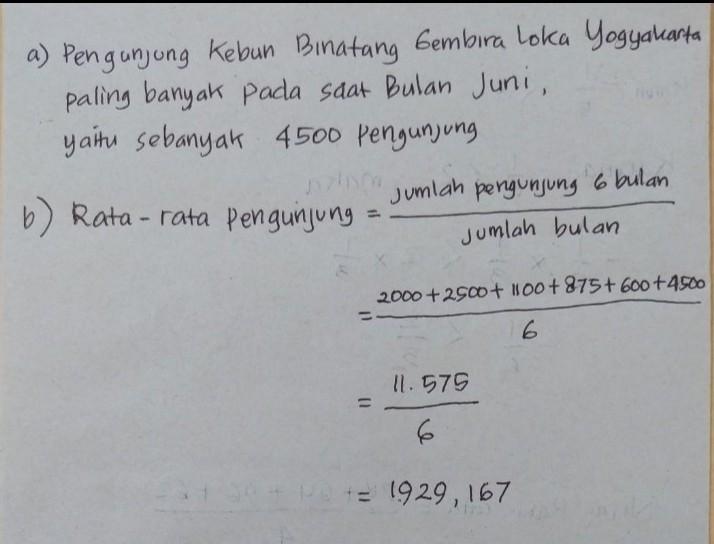 a) Pengunjung Kebun Binatang Gembira Loka Yogyakarta
paling banyak pada saat Bulan Juni,
yaitu sebanyak 4500 Pengunjung
b) Rata-rata Pengunjung = jumlah pengunjung 6 bulan
jumlah bulan
= 2000+2500+1100+875+600+4500
6
= 11.575
6
= 1929,167